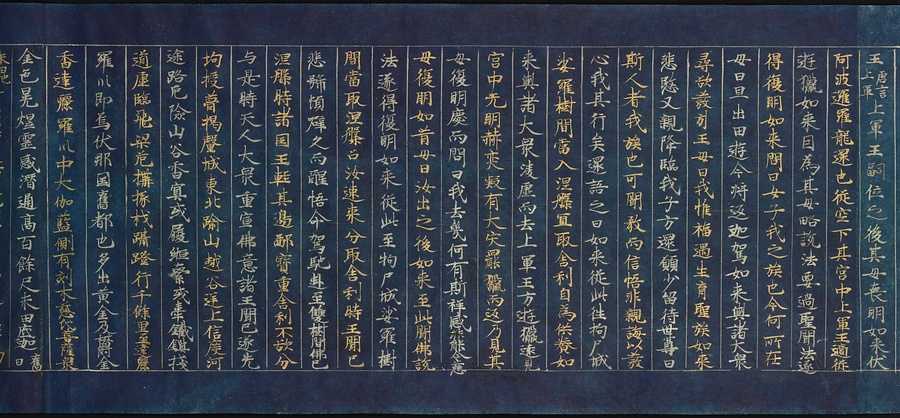 王唐言上軍上軍王嗣位之後其母喪明如來伏
阿波邏羅龍還也從空下其宮中上軍王適從
遊獵如來因為其母略說法要遇聖聞法遂
得復明如來問曰女子我之族也今何所在
母曰旦出田遊今將返迦駕如來與諸大眾
尋欲發引王母曰我惟福遇生育聖族如來
悲愍又親降臨我子方還願少留待世尊曰
斯人者我族也可聞教而信悟非親誨以發
心我其行矣還語之曰如來從此往拘尸城
娑羅樹間當入涅槃宜取舍利自為供養如
來與諸大眾淩虛而去上軍王方遊獵遠見
宮中光明赫奕疑有火災罷獵而返乃見其
母復明慶而問曰我去幾何有斯祥感能令慈
母復明如昔母曰汝出之後如來至此聞佛說
法遂得復明如來從此至拘尸城娑羅樹
間當取涅槃召汝速來分取舍利時王聞已
悲號頓躃久而醒悟命駕馳赴至雙樹間佛已
涅槃時諸國王輕其邊鄙寶重舍利不欲分
与是時天人大眾重宣佛意諸王聞已遂先
均授瞢揭釐城東北踰山越谷逆上信度河
途路危險山谷杳冥或履縆索或牽鐵鎖棧
道虛臨飛梁危構椽杙躡蹬行千餘里至達麗
羅川即烏仗那國舊都也多出黃金及鬱金
香達麗羅川中大伽藍側有刻木慈氏菩薩像
金色晃煜靈感潛通高百餘尺末田底迦舊曰